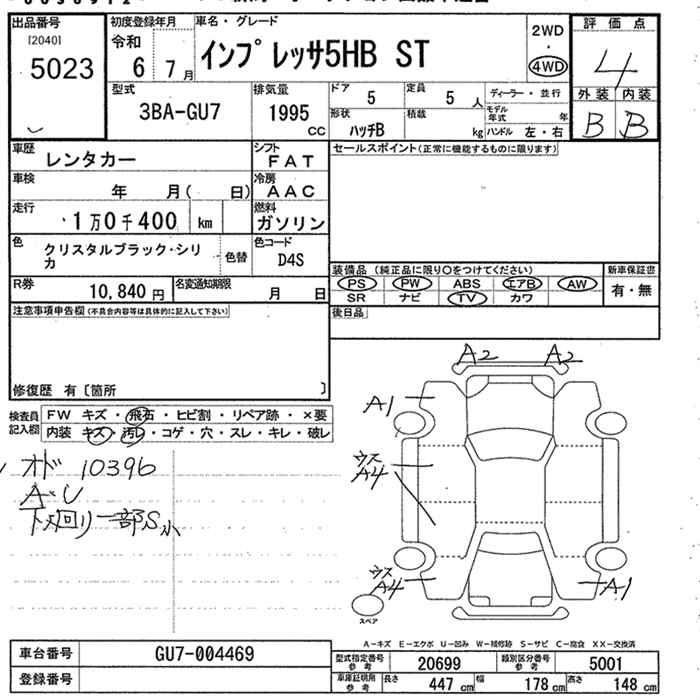 出品番号
[2040]
5023
初度登録年月
令和
6 7月
車名・グレード
インプレッサ5HB ST
2WD
・
4WD
評価点
4
外装 内装
B B
型式
3BA-GU7
排気量
1995
CC
ドア
5
定員
5人
形状
ハッチB
積載
kg
ディーラー・並行
モデル年式 年
ハンドル 左・右
車歴
レンタカー
シフト
FAT
車検
年 月( 日)
冷房
AAC
走行
1万0千400 km
燃料
ガソリン
色
クリスタルブラック・シリカ
色替
色コード
D4S
R券
10,840円
名変通知期限
月 日
セールスポイント(正常に機能するものに限ります)
装備品 (純正品に限り○をつけてください)
PS PW ABS エアB AW
SR ナビ TV カワ
新車保証書
有・無
後日品
注意事項申告欄(不具合内容等は具体的に記入して下さい)
修復歴 有[箇所 ]
検査員記入欄
FW キズ・飛石・ヒビ割・リペア跡・×要
内装 キズ・汚レ・コゲ・穴・スレ・キレ・破レ
オド 10396
A・U
下廻り一部S小
A2 A2
A1
ウス
A4
ウス
A4
A1
スペア
A-キズ E-エクボ U-凹み W-補修跡 S-サビ C-腐食 XX-交換済
車台番号
GU7-004469
登録番号
型式指定番号
参考
20699
類別区分番号
参考
5001
車庫証明用
参考
長さ
447cm
幅
178cm
高さ
148cm